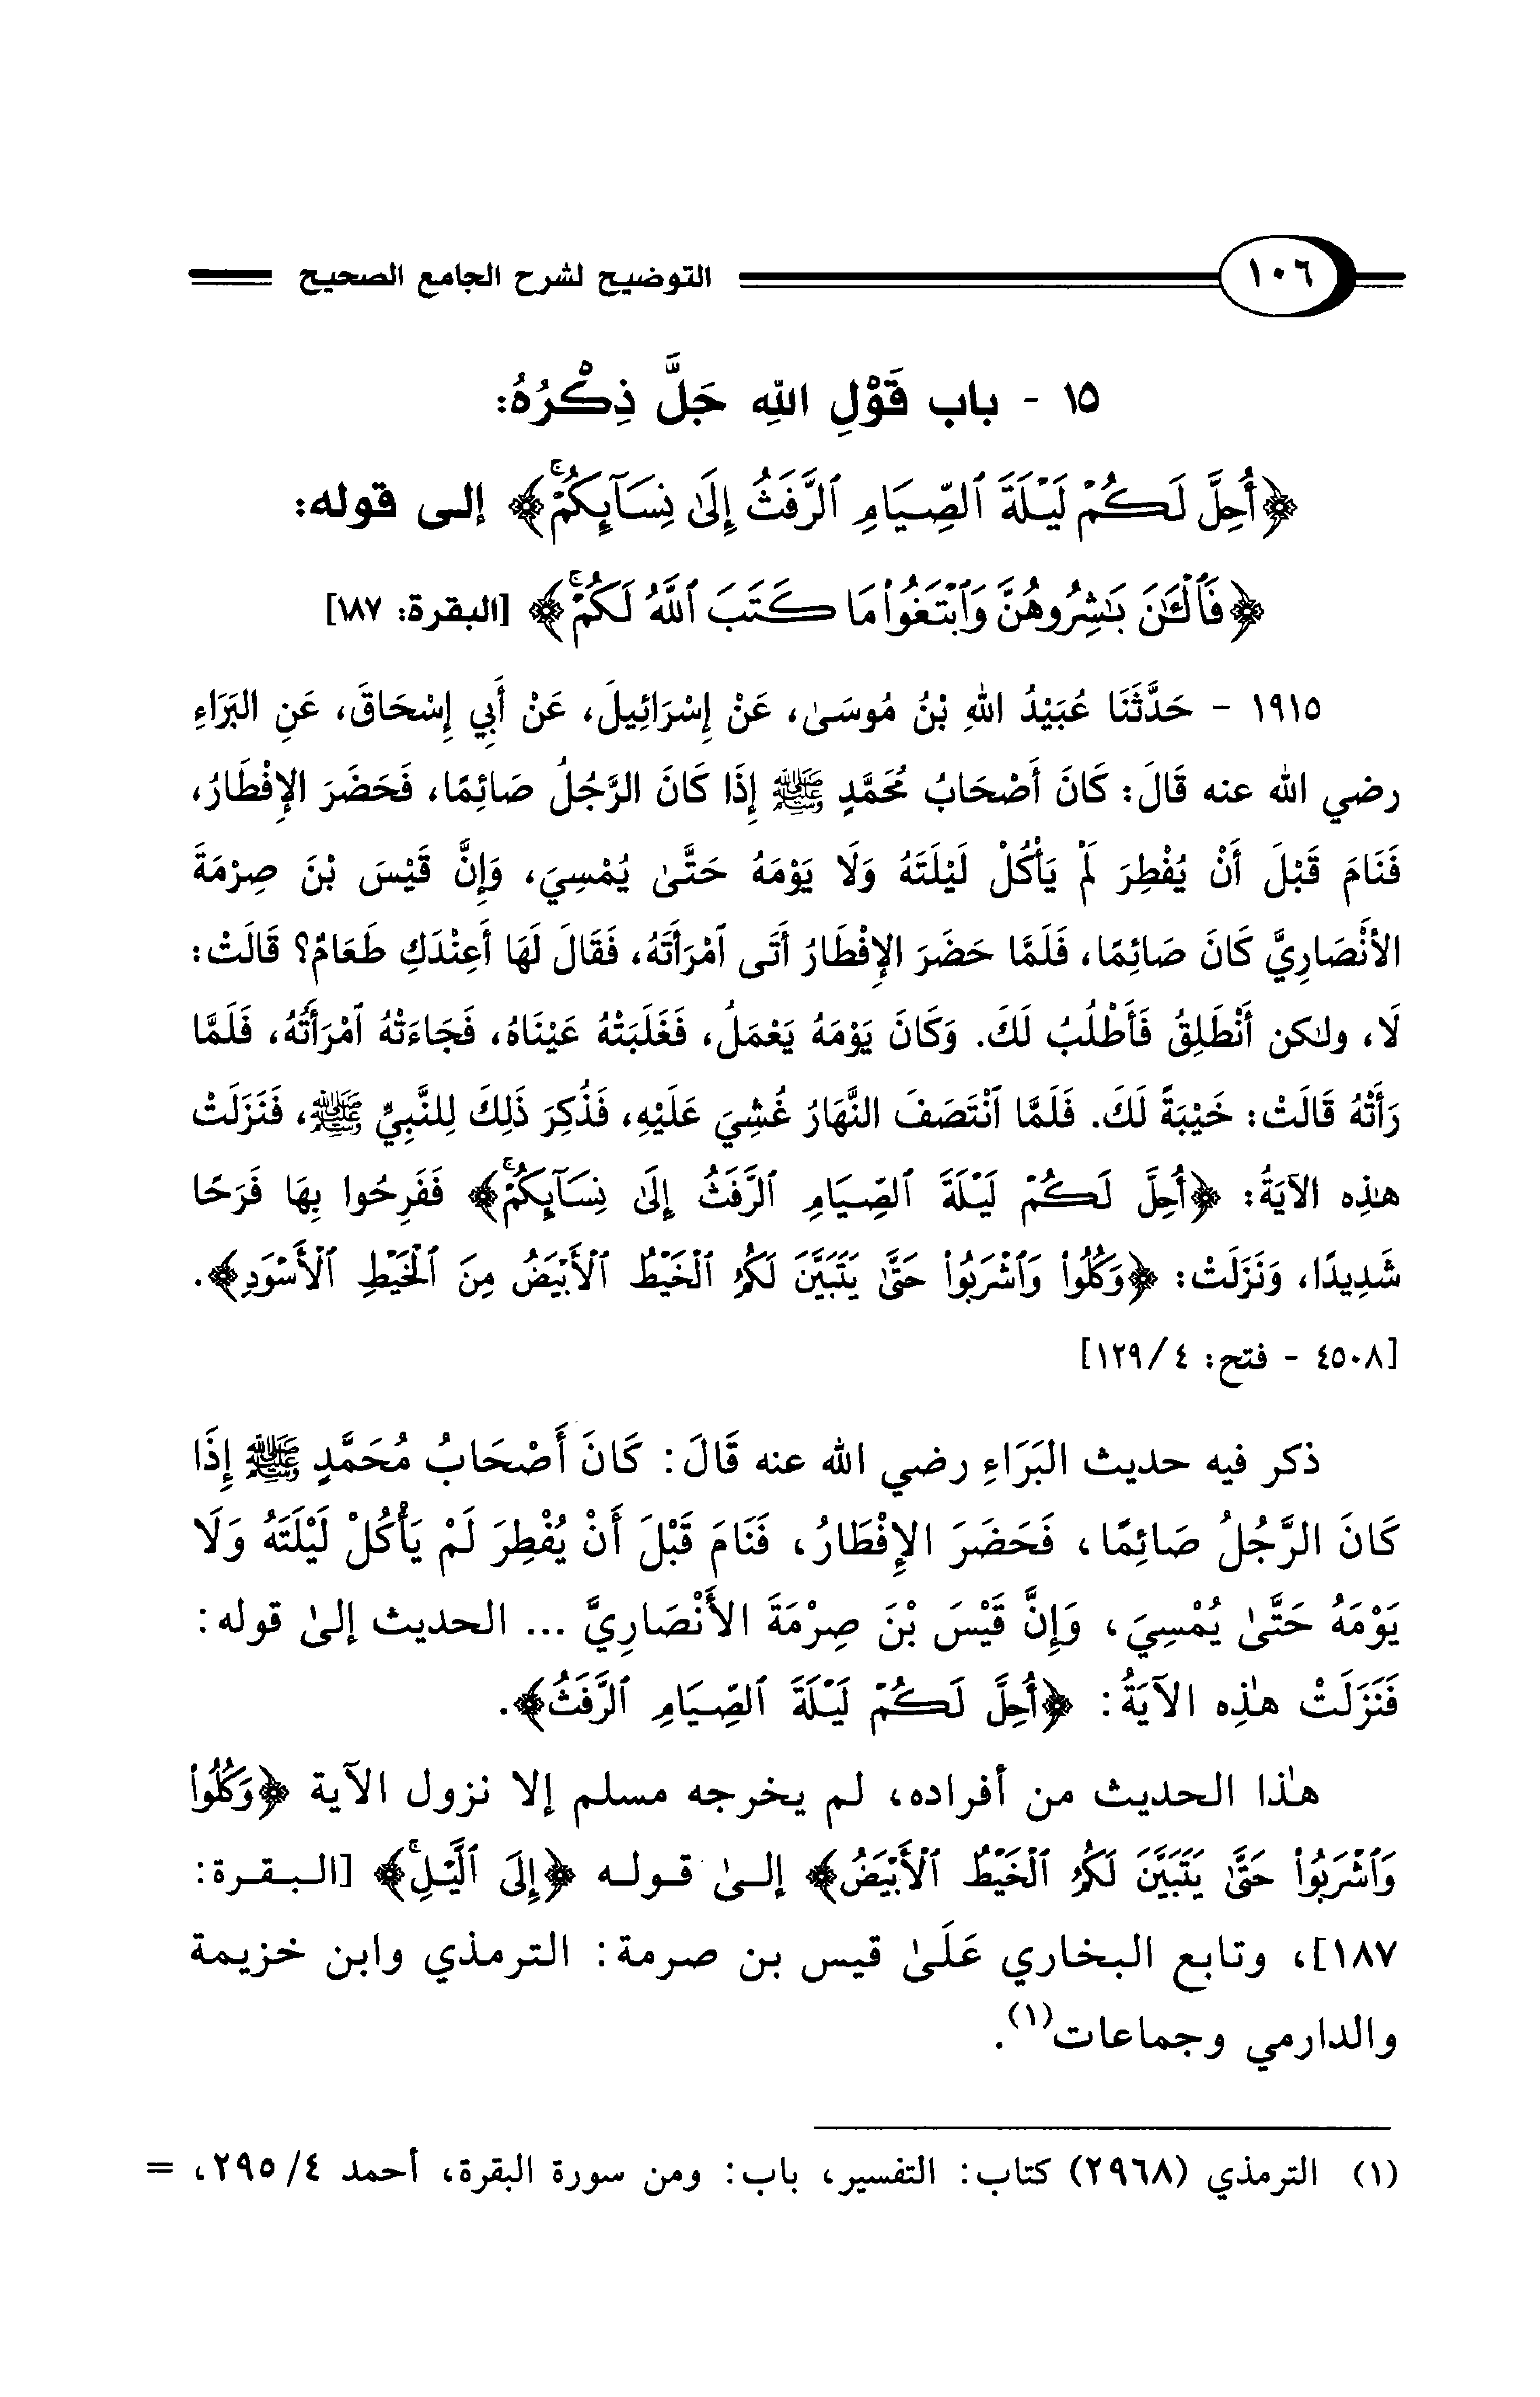 ١٠٦ التوضيح لشرح الجامع الصحيح
١٥ - باب قَوْلِ اللهِ جَلَّ ذِكْرُهُ:
﴿أُحِلَّ لَكُمْ لَيْلَةَ ٱلصِّيَامِ ٱلرَّفَثُ إِلَىٰ نِسَآئِكُمْۚ﴾ إلى قوله:
﴿فَٱلْـَٰٔنَ بَٰشِرُوهُنَّ وَٱبْتَغُوا۟ مَا كَتَبَ ٱللَّهُ لَكُمْۚ﴾ [البقرة: ١٨٧]
١٩١٥ - حَدَّثَنَا عُبَيْدُ اللهِ بْنُ مُوسَىٰ، عَنْ إِسْرَائِيلَ، عَنْ أَبِي إِسْحَاقَ، عَنِ البَرَاءِ
رضي الله عنه قَالَ: كَانَ أَصْحَابُ مُحَمَّدٍ ﷺ إِذَا كَانَ الرَّجُلُ صَائِمًا، فَحَضَرَ الإِفْطَارُ،
فَنَامَ قَبْلَ أَنْ يُفْطِرَ لَمْ يَأْكُلْ لَيْلَتَهُ وَلَا يَوْمَهُ حَتَّىٰ يُمْسِيَ، وَإِنَّ قَيْسَ بْنَ صِرْمَةَ
الأَنْصَارِيَّ كَانَ صَائِمًا، فَلَمَّا حَضَرَ الإِفْطَارُ أَتَى ٱمْرَأَتَهُ، فَقَالَ لَهَا أَعِنْدَكِ طَعَامٌ؟ قَالَتْ:
لَا، ولكن أَنْطَلِقُ فَأَطْلُبُ لَكَ. وَكَانَ يَوْمَهُ يَعْمَلُ، فَغَلَبَتْهُ عَيْنَاهُ، فَجَاءَتْهُ ٱمْرَأَتُهُ، فَلَمَّا
رَأَتْهُ قَالَتْ: خَيْبَةً لَكَ. فَلَمَّا ٱنْتَصَفَ النَّهَارُ غُشِيَ عَلَيْهِ، فَذُكِرَ ذَلِكَ لِلنَّبِيِّ ﷺ، فَنَزَلَتْ
هذِه الآيَةُ: ﴿أُحِلَّ لَكُمْ لَيْلَةَ ٱلصِّيَامِ ٱلرَّفَثُ إِلَىٰ نِسَآئِكُمْۚ﴾ فَفَرِحُوا بِهَا فَرَحًا
شَدِيدًا، وَنَزَلَتْ: ﴿وَكُلُوا۟ وَٱشْرَبُوا۟ حَتَّىٰ يَتَبَيَّنَ لَكُمُ ٱلْخَيْطُ ٱلْأَبْيَضُ مِنَ ٱلْخَيْطِ ٱلْأَسْوَدِ﴾.
[٤٥٠٨ - فتح: ٤/ ١٢٩]
ذكر فيه حديث البَرَاءِ رضي الله عنه قَالَ: كَانَ أَصْحَابُ مُحَمَّدٍ ﷺ إِذَا
كَانَ الرَّجُلُ صَائِمًا، فَحَضَرَ الإِفْطَارُ، فَنَامَ قَبْلَ أَنْ يُفْطِرَ لَمْ يَأْكُلْ لَيْلَتَهُ وَلَا
يَوْمَهُ حَتَّىٰ يُمْسِيَ، وَإِنَّ قَيْسَ بْنَ صِرْمَةَ الأَنْصَارِيَّ ... الحديث إلىٰ قوله:
فَنَزَلَتْ هٰذِه الآيَةُ: ﴿أُحِلَّ لَكُمْ لَيْلَةَ ٱلصِّيَامِ ٱلرَّفَثُ﴾.
هٰذا الحديث من أفراده، لم يخرجه مسلم إلا نزول الآية ﴿وَكُلُوا۟
وَٱشْرَبُوا۟ حَتَّىٰ يَتَبَيَّنَ لَكُمُ ٱلْخَيْطُ ٱلْأَبْيَضُ﴾ إلىٰ قوله ﴿إِلَى ٱلَّيْلِۚ﴾ [البقرة:
١٨٧]، وتابع البخاري عَلَىٰ قيس بن صرمة: الترمذي وابن خزيمة
والدارمي وجماعات(١).
(١) الترمذي (٢٩٦٨) كتاب: التفسير، باب: ومن سورة البقرة، أحمد ٤/ ٢٩٥، =